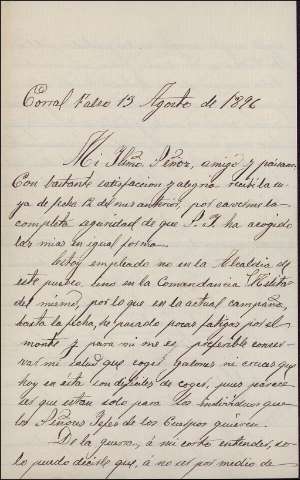 Corral Falso 13 Agosto de 1896
Mi Iltmo Señor, amigo y paisano:
Con bastante satisfaccion y alegria recibi la su
ya de fecha 12 del mes anterior, por caverme la
completa seguridad de que S. I. ha acogido
las mias en igual forma.
Estoy empleado no en la Alcaldia de
este pueblo, sino en la Comandancia Militar
del mismo, por lo que en la actual campaña,
hasta la fecha, he pasado pocas fatigas por el
monte y para mi me es preferible conser
var mi salud que coger galones ni cruces que
hoy en esta son dificiles de coger, pues parece
es que estan solo para los individuos que
los Señores Jefes de los Cuerpos quieren.
De la guerra, á mi corto entender, so-
lo puedo decirle que, á no ser por medio de